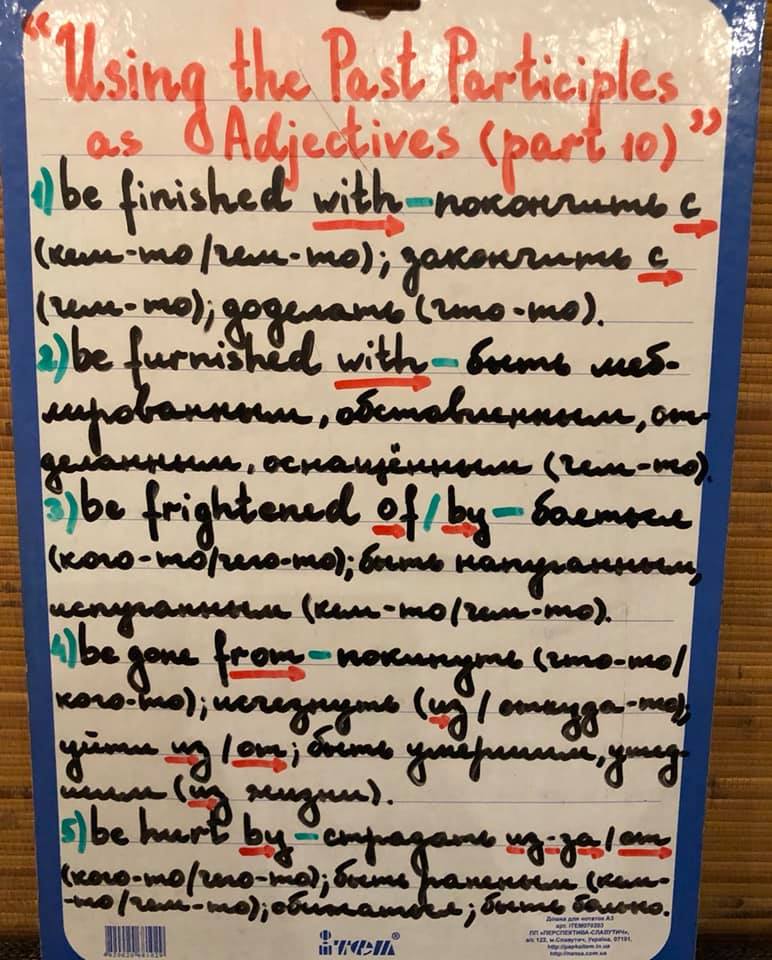 “Using the Past Participles
as Adjectives (part 10)”
1) be finished with – покончить с
(кем-то/чем-то); закончить с
(чем-то); доделать (что-то).
2) be furnished with – быть меб-
лированным, обставленным, от-
деланным, оснащённым (чем-то).
3) be frightened of / by – бояться
(кого-то/чего-то); быть напуганным,
испуганным (кем-то/чем-то).
4) be gone from – покинуть (что-то/
кого-то); исчезнуть (из / откуда-то);
уйти из / от; быть умершим, ушед-
шим (из жизни).
5) be hurt by – страдать из-за / от
(кого-то/чего-то); быть раненым (кем-
-то/чем-то); обижаться; быть больно.
ітем®
Дошка для нотаток А3
арт. ITEM070203
ПП «ПЕРСПЕКТИВА-СЛАВУТИЧ»,
а/с 122, м.Славутич, Україна, 07101,